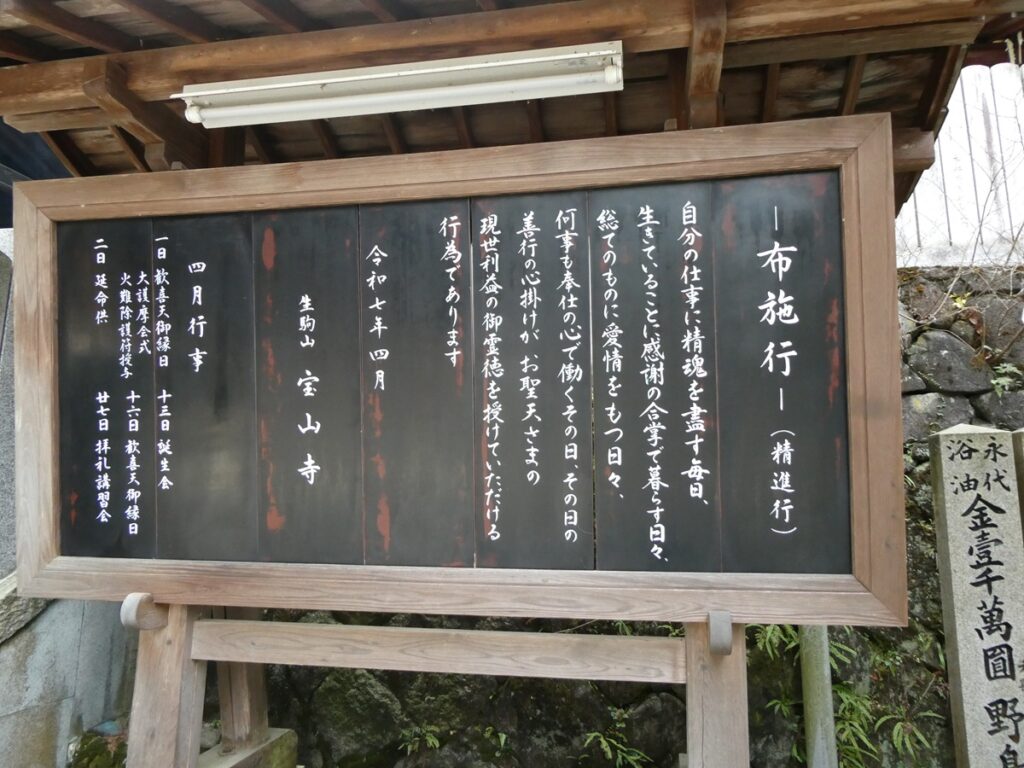 ―布施行―（精進行）
自分の仕事に精魂を盡す毎日、
生きていることに感謝の合掌で暮らす日々、
総てのものに愛情をもつ日々、
何事も奉仕の心で働くその日、その日の
善行の心掛けが お聖天さまの
現世利益の御霊徳を授けていただける
行為であります
令和七年四月
生駒山 宝山寺
四月行事
一日 歓喜天御縁日
大護摩会式
火難除護符授与
二日 延命供
十三日 誕生会
十六日 歓喜天御縁日
廿七日 拝礼講習会
永代
浴油
金壹千萬圓 野